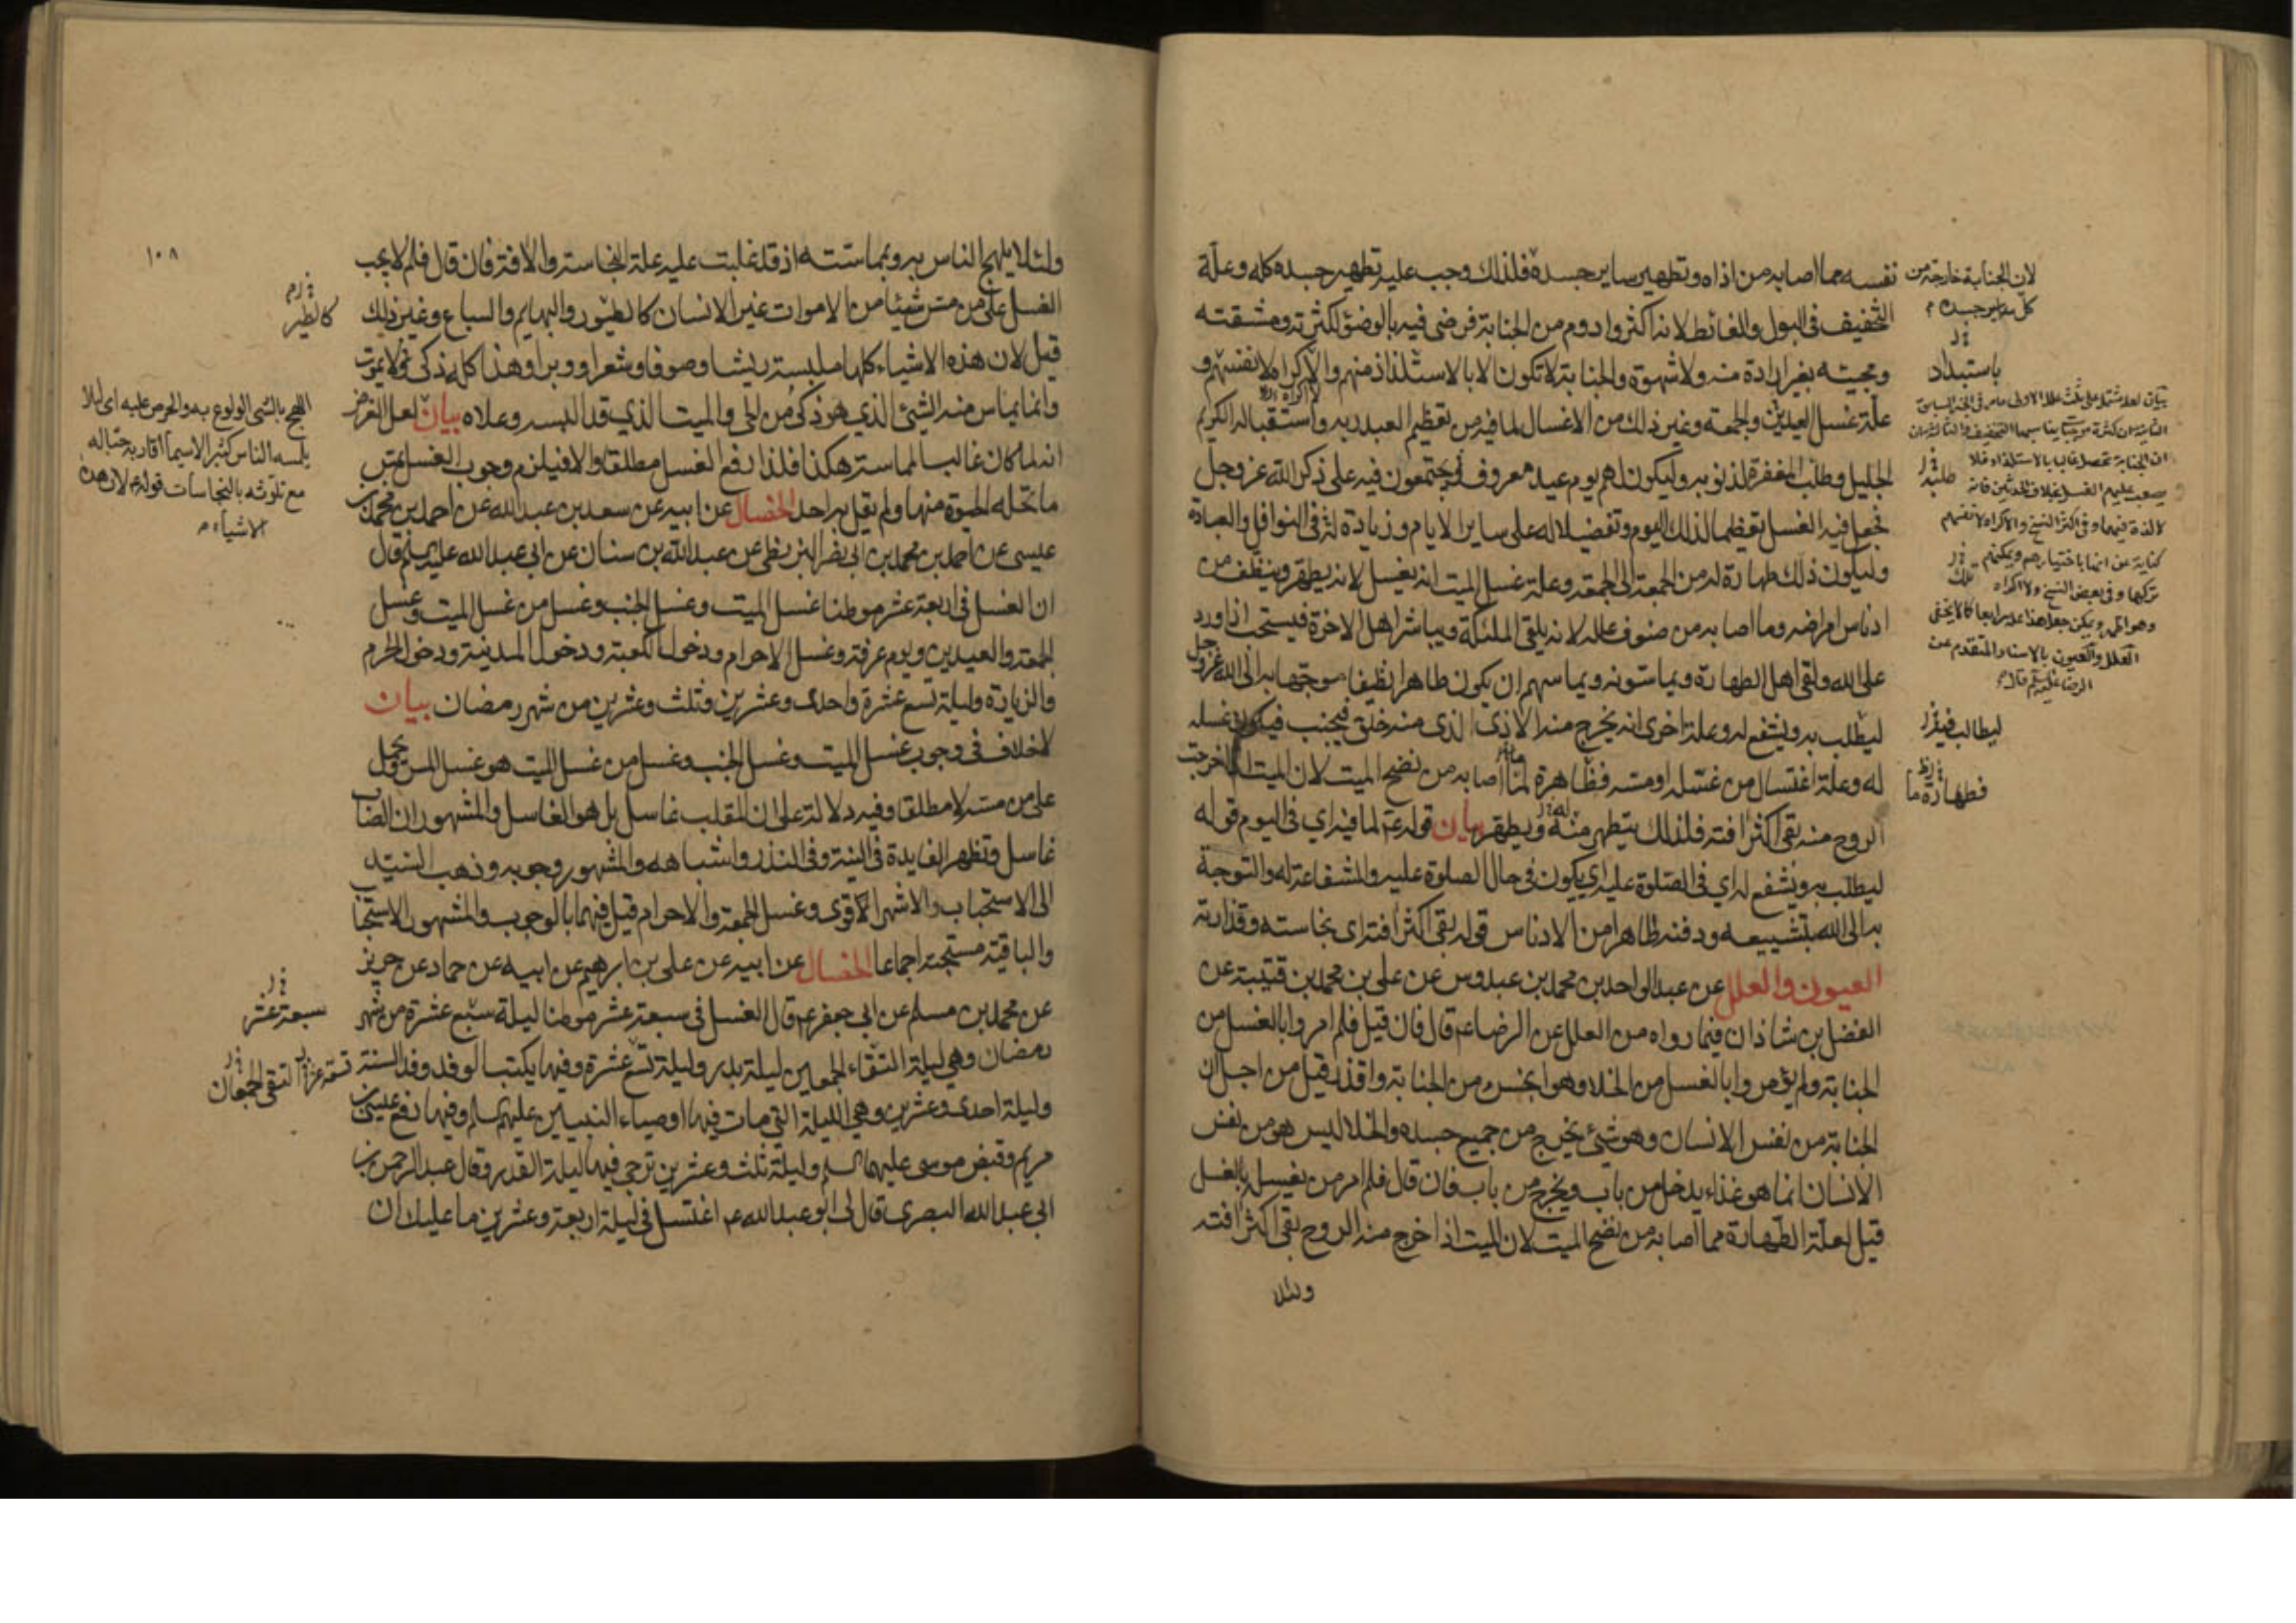 نفسه مما اصابه من اذاه وتطهير ساير جسده فلذلك وجب عليه تطهير جسده كله وعلة
التخفيف فى البول والغائط لانه اكثر وادوم من الجنابة فرضى فيه بالوضوء لكثرته ومشقته
ومجيئه بغير ارادة منه ولا شهوة والجنابة لا تكون الا بالاستلذاذ منهم والاكراه لانفسهم و
علة غسل العيدين والجمعة وغير ذلك من الاغسال لما فيه من تعظيم العبد ربه واستقباله الكريم
الجليل وطلب المغفرة لذنوبه وليكون لهم يوم عيد معروف يجتمعون فيه على ذكر الله عز وجل
فجعل فيه الغسل تعظيما لذلك اليوم وتفضيلا له على ساير الايام وزيادة فى النوافل والعبادة
وليكون ذلك طهارة له من الجمعة الى الجمعة وعلة غسل الميت انه يغسل لانه يطهر وينظف من
ادناس امراضه وما اصابه من صنوف علله لانه يلقى الملئكة ويباشر اهل الاخرة فيستحب اذا ورد
على الله ولقى اهل الطهارة ويماسونه ويماسهم ان يكون طاهرا نظيفا موجها به الى الله عز وجل
ليطلب به ويشفع له وعلة اخرى انه يخرج منه الاذى الذى منه خلق فيجنب فيكون غسله
له وعلة اغتسال من غسله او مسه فظاهرة لما اصابه من نضح الميت لان الميت اذا خرجت
الروح منه بقى اكثر افته فلذلك يتطهر منه ويطهر بيان قوله ع لما فيه اي فى اليوم قوله
ليطلب به ويشفع له اي فى الصلوة عليه اي يكون فى حال الصلوة عليه والشفاعة له والتوجه
به الى الله بتشييعه ودفنه طاهرا من الادناس قوله بقى اكثر افته اى نجاسته وقذارته
العيون والعلل عن عبد الواحد بن محمد بن عبدوس عن على بن محمد بن قتيبة عن
الفضل بن شاذان فيما رواه من العلل عن الرضا ع قال فان قيل فلم امروا بالغسل من
الجنابة ولم يؤمروا بالغسل من الخلا وهو انجس من الجنابة واقذر قيل من اجل ان
الجنابة من نفس الانسان وهو شئ يخرج من جميع جسده والخلا ليس هو من نفس
الانسان انما هو غذاء يدخل من باب ويخرج من باب فان قال فلم امر من يغسله بالغسل
قيل لعلة الطهارة مما اصابه من نضح الميت لان الميت اذا خرج منه الروح بقى اكثر افته
ولئلا
لان الجنابة خارجة من
كل ساير جسده
باستبداد
طلبته
تلك
العلل والعيون بالاسناد المتقدم عن
الرضا
ليطالب فيه
فطهارة ما
١٠٨
ولئلا يلهج الناس به وبمماسته اذ قد غلبت عليه علة النجاسة والافة فان قال فلم لا يجب
الغسل على من مس شيئا من الاموات غير الانسان كالطيور والبهايم والسباع وغير ذلك
قيل لان هذه الاشياء كلها ملبسة ريشا وصوفا وشعرا ووبرا وهذا كله ذكى ولا يموت
وانما يماس منه الشئ الذي هو ذكى من الحى والميت الذي قد البسه وعلاه بيان لعل الغرض
انه لما كان غالب المماسة هكذا فلذا رفع الغسل مطلقا والا فيلزم وجوب الغسل بمس
ما تحله الحيوة منها ولم يقل به احد الخصال عن ابيه عن سعد بن عبد الله عن احمد بن محمد بن
عيسى عن احمد بن محمد بن ابى نصر البزنطى عن عبد الله بن سنان عن ابى عبد الله عليه السلم قال
ان الغسل فى اربعة عشر موطنا غسل الميت وغسل الجنب وغسل من غسل الميت وغسل
الجمعة والعيدين ويوم عرفة وغسل الاحرام ودخول الكعبة ودخول المدينة ودخول الحرم
والزيارة وليلة تسع عشرة واحدى وعشرين وثلث وعشرين من شهر رمضان بيان
لا خلاف فى وجوب غسل الميت وغسل الجنب وغسل من غسل الميت هو غسل المس ويحمل
على من مسه لا مطلقا وفيه دلالة على ان المقلب غاسل بل هو الغاسل والمشهور ان الصاب
غاسل وتظهر الفايدة فى النية وفى النذر واشباهه والمشهور وجوبه وذهب السيد
الى الاستحباب والاشهر الاقوى وغسل الجمعة والاحرام قيل فيهما بالوجوب والمشهور الاستحباب
والباقية مستحبة اجماعا الخصال عن ابيه عن على بن ابرهيم عن ابيه عن حماد عن حريز
عن محمد بن مسلم عن ابي جعفر ع قال الغسل فى سبعة عشر موطنا ليلة سبع عشرة من شهر
رمضان وهى ليلة التقاء الجمعين ليلة بدر وليلة تسع عشرة وفيها يكتب الوفد وفد السنة
وليلة احدى وعشرين وهى الليلة التي مات فيها اوصياء النبيين عليهم السلم وفيها رفع عيسى بن
مريم وقبض موسى عليهما السلم وليلة ثلث وعشرين ترجى فيها ليلة القدر وقال عبد الرحمن بن
ابى عبد الله البصرى قال لى ابو عبد الله ع اغتسل فى ليلة اربعة وعشرين ما عليك ان
كالطير
اللهج بالشى الولوع به والحرص عليه اى لئلا
يلمسه الناس كثيرا لا سيما اقاربه حبا له
مع تلوثه بالنجاسات قوله لان هذه
الاشياء
سبعة عشر
التقى الجمعان